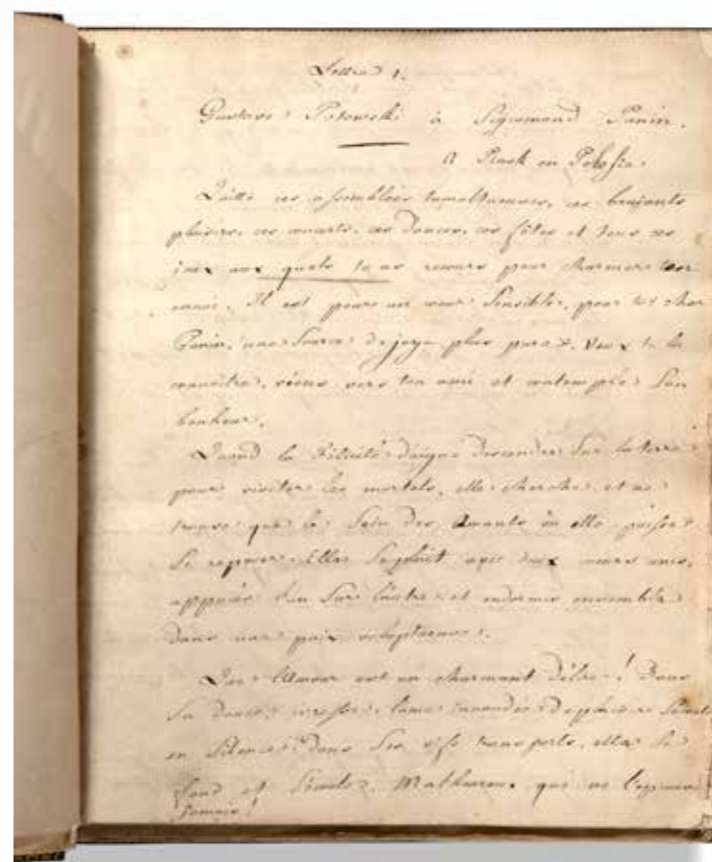 Lettre 1.
Gustave Potowski à Sigismond Panin.
A Pinsk en Polesie
Quitte ces assemblées tumultueuses, ces bruyants
plaisirs, ces concerts, ces dances, ces fêtes et tous ces
jeux aux quels tu as recours pour charmer ton
ennui. Il est pour un cœur sensible, pour toi cher
Panin, une source de joye plus pure. Veux tu la
connoitre, viens vers ton ami et contemple son
bonheur.
Quand la Félicité daigne descendre sur la terre
pour visiter les mortels, elle cherche et ne
trouve que le sein des Amants où elle puisse
se reposer. Elle se plait avec deux cœurs unis,
appuiés l'un sur l'autre et endormis ensemble
dans une paix voluptueuse.
Que l'Amour est un charmant délire! Dans
sa douce ivresse l'ame innondée de plaisirs
en silence: dans ses vifs transports, elle se
fond et s'écoule. Malheureux qui ne l'éprouva
jamais!